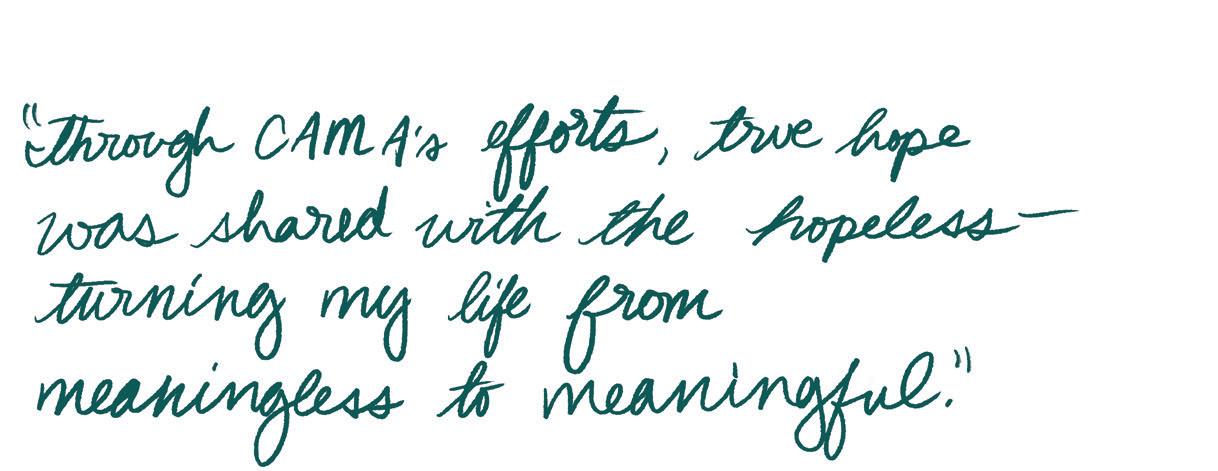 "Through CAMA's efforts, true hope
was shared with the hopeless—
turning my life from
meaningless to meaningful."